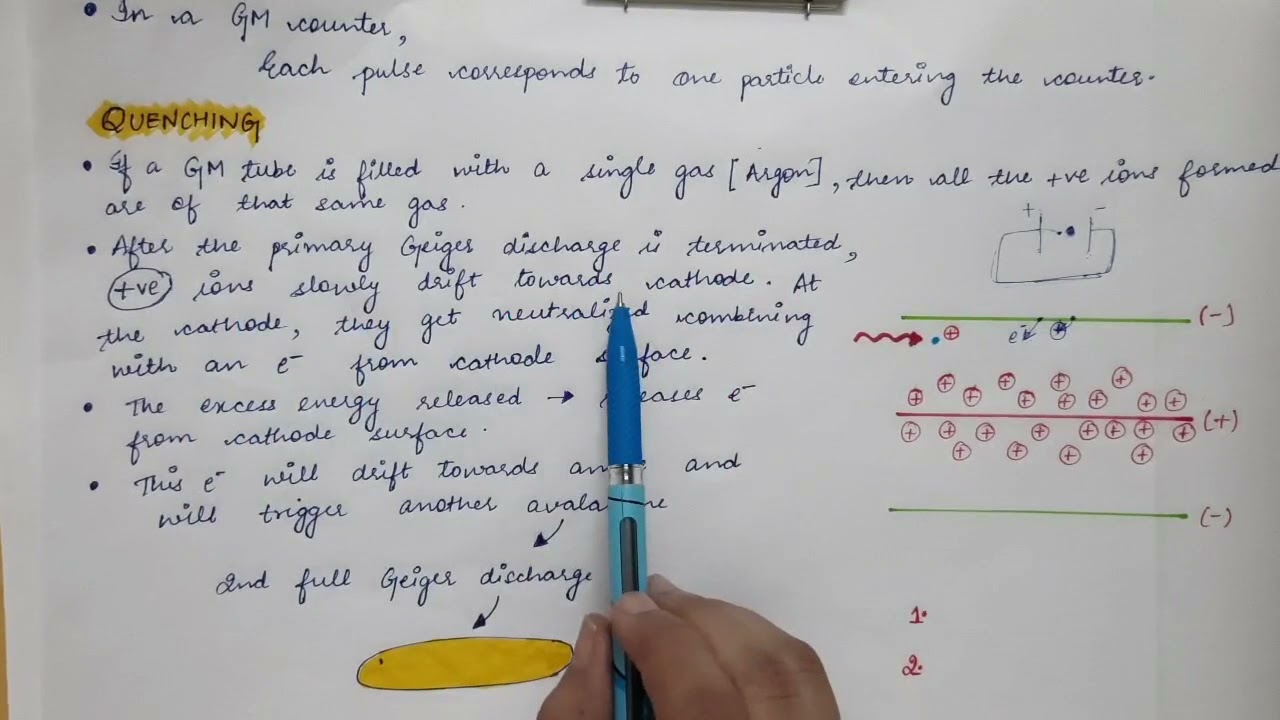 • In a GM counter,
Each pulse corresponds to one particle entering the counter.
QUENCHING
• If a GM tube is filled with a single gas [Argon], then all the +ve ions formed
are of that same gas.
• After the primary Geiger discharge is terminated,
+ve ions slowly drift towards cathode. At
the cathode, they get neutralized combining
with an e⁻ from cathode
• The excess energy released →
e⁻
from cathode surface.
• This e⁻ will drift towards
and
will trigger another
2nd full Geiger discharge
+ -
(-)
+ e⁻ +
+ + + + + + + + + + +
(+)
+ + + + + + + + + + + +
(-)
1.
2.